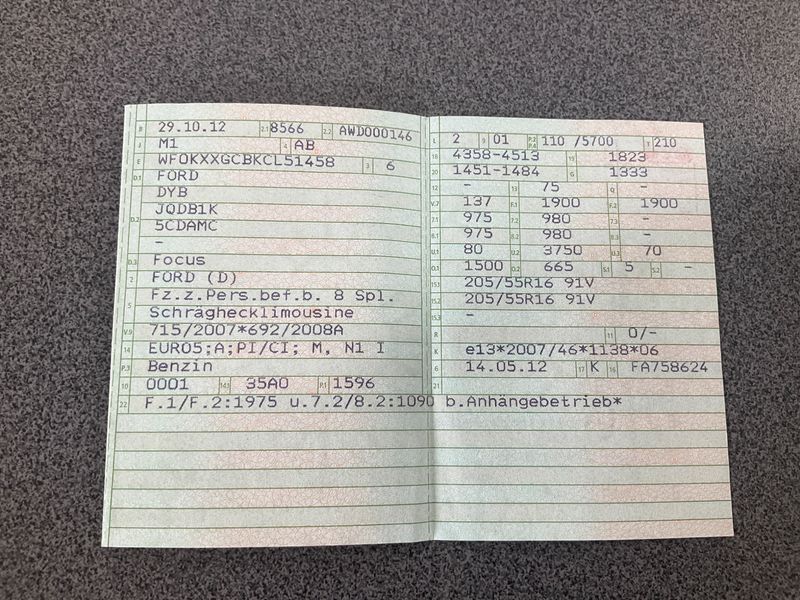 B 29.10.12 2.1 8566 2.2 AWD000146
J M1 4 AB
E WF0KXXGCBKCL51458 3 6
D.1 FORD
DYB
D.2 JQDB1K
5CDAMC
-
D.3 Focus
2 FORD (D)
5 Fz.z.Pers.bef.b. 8 Spl.
Schräghecklimousine
V.9 715/2007*692/2008A
14 EURO5;A;PI/CI; M, N1 I
P.3 Benzin
10 0001 14.1 35A0 P.1 1596
22 F.1/F.2:1975 u.7.2/8.2:1090 b.Anhängebetrieb*
L 2 9 01 P.2 P.4 110 /5700 T 210
18 4358-4513 19 1823
20 1451-1484 G 1333
12 - 13 75 Q -
V.7 137 F.1 1900 F.2 1900
7.1 975 7.2 980 7.3 -
8.1 975 8.2 980 8.3 -
U.1 80 U.2 3750 U.3 70
O.1 1500 O.2 665 S.1 5 S.2 -
15.1 205/55R16 91V
15.2 205/55R16 91V
15.3 -
R 11 0/-
K e13*2007/46*1138*06
6 14.05.12 17 K 16 FA758624
21